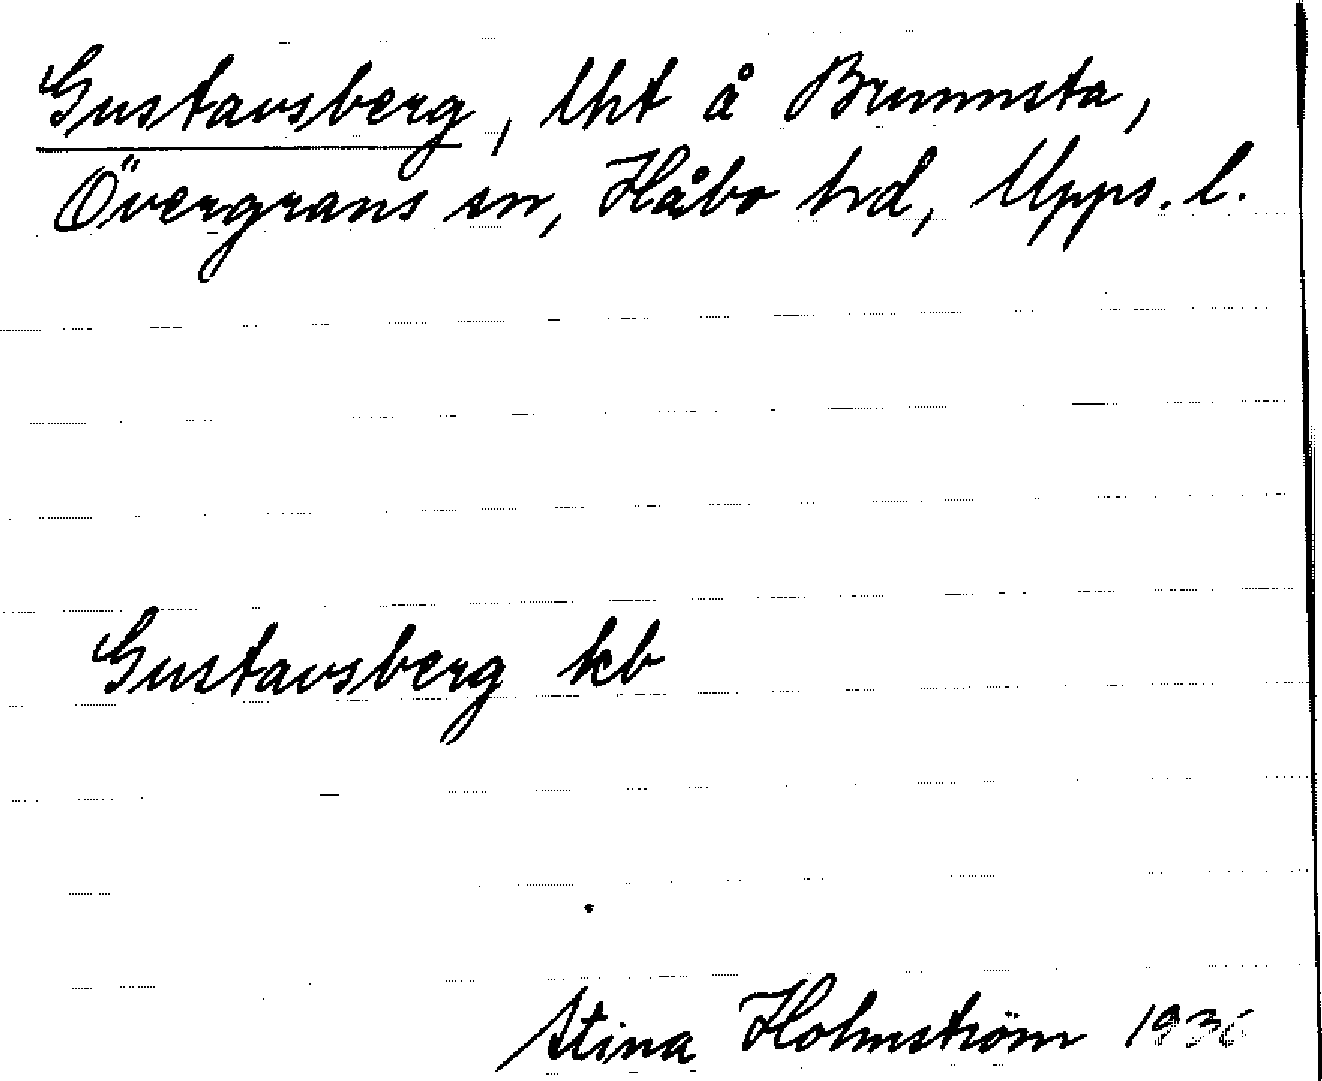 Gustavsberg, lht å Brunnsta,
Övergrans sn, Håbo hd, Upps. l.
Gustavsberg kb
Stina Holmström 1936